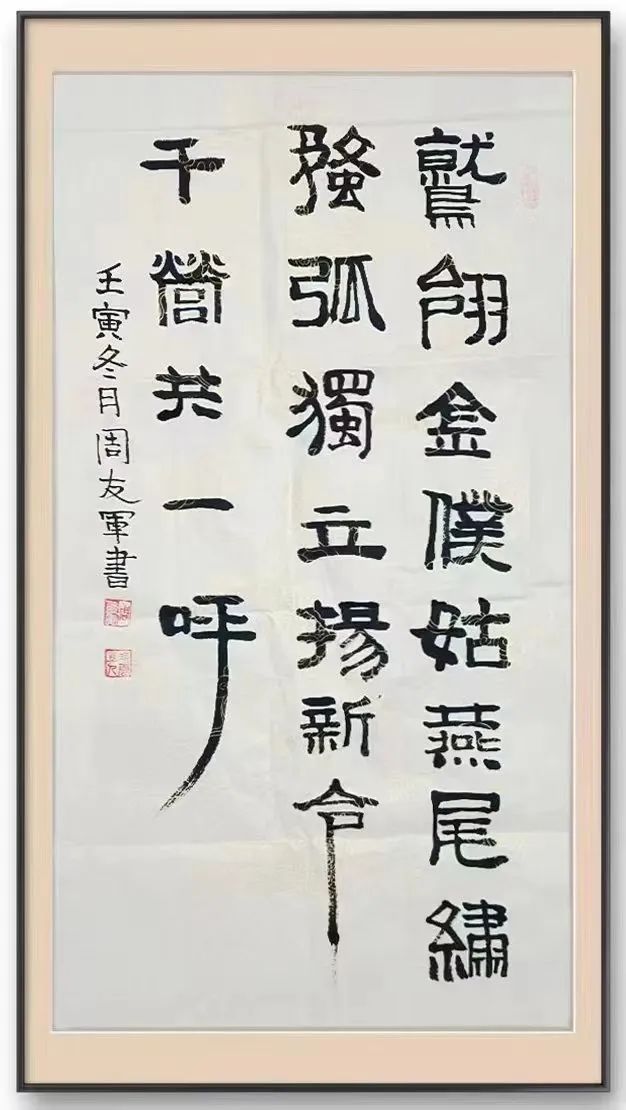 鷲翎金僕姑燕尾繡
蝥弧獨立揚新令
千營共一呼
壬寅冬月周友軍書